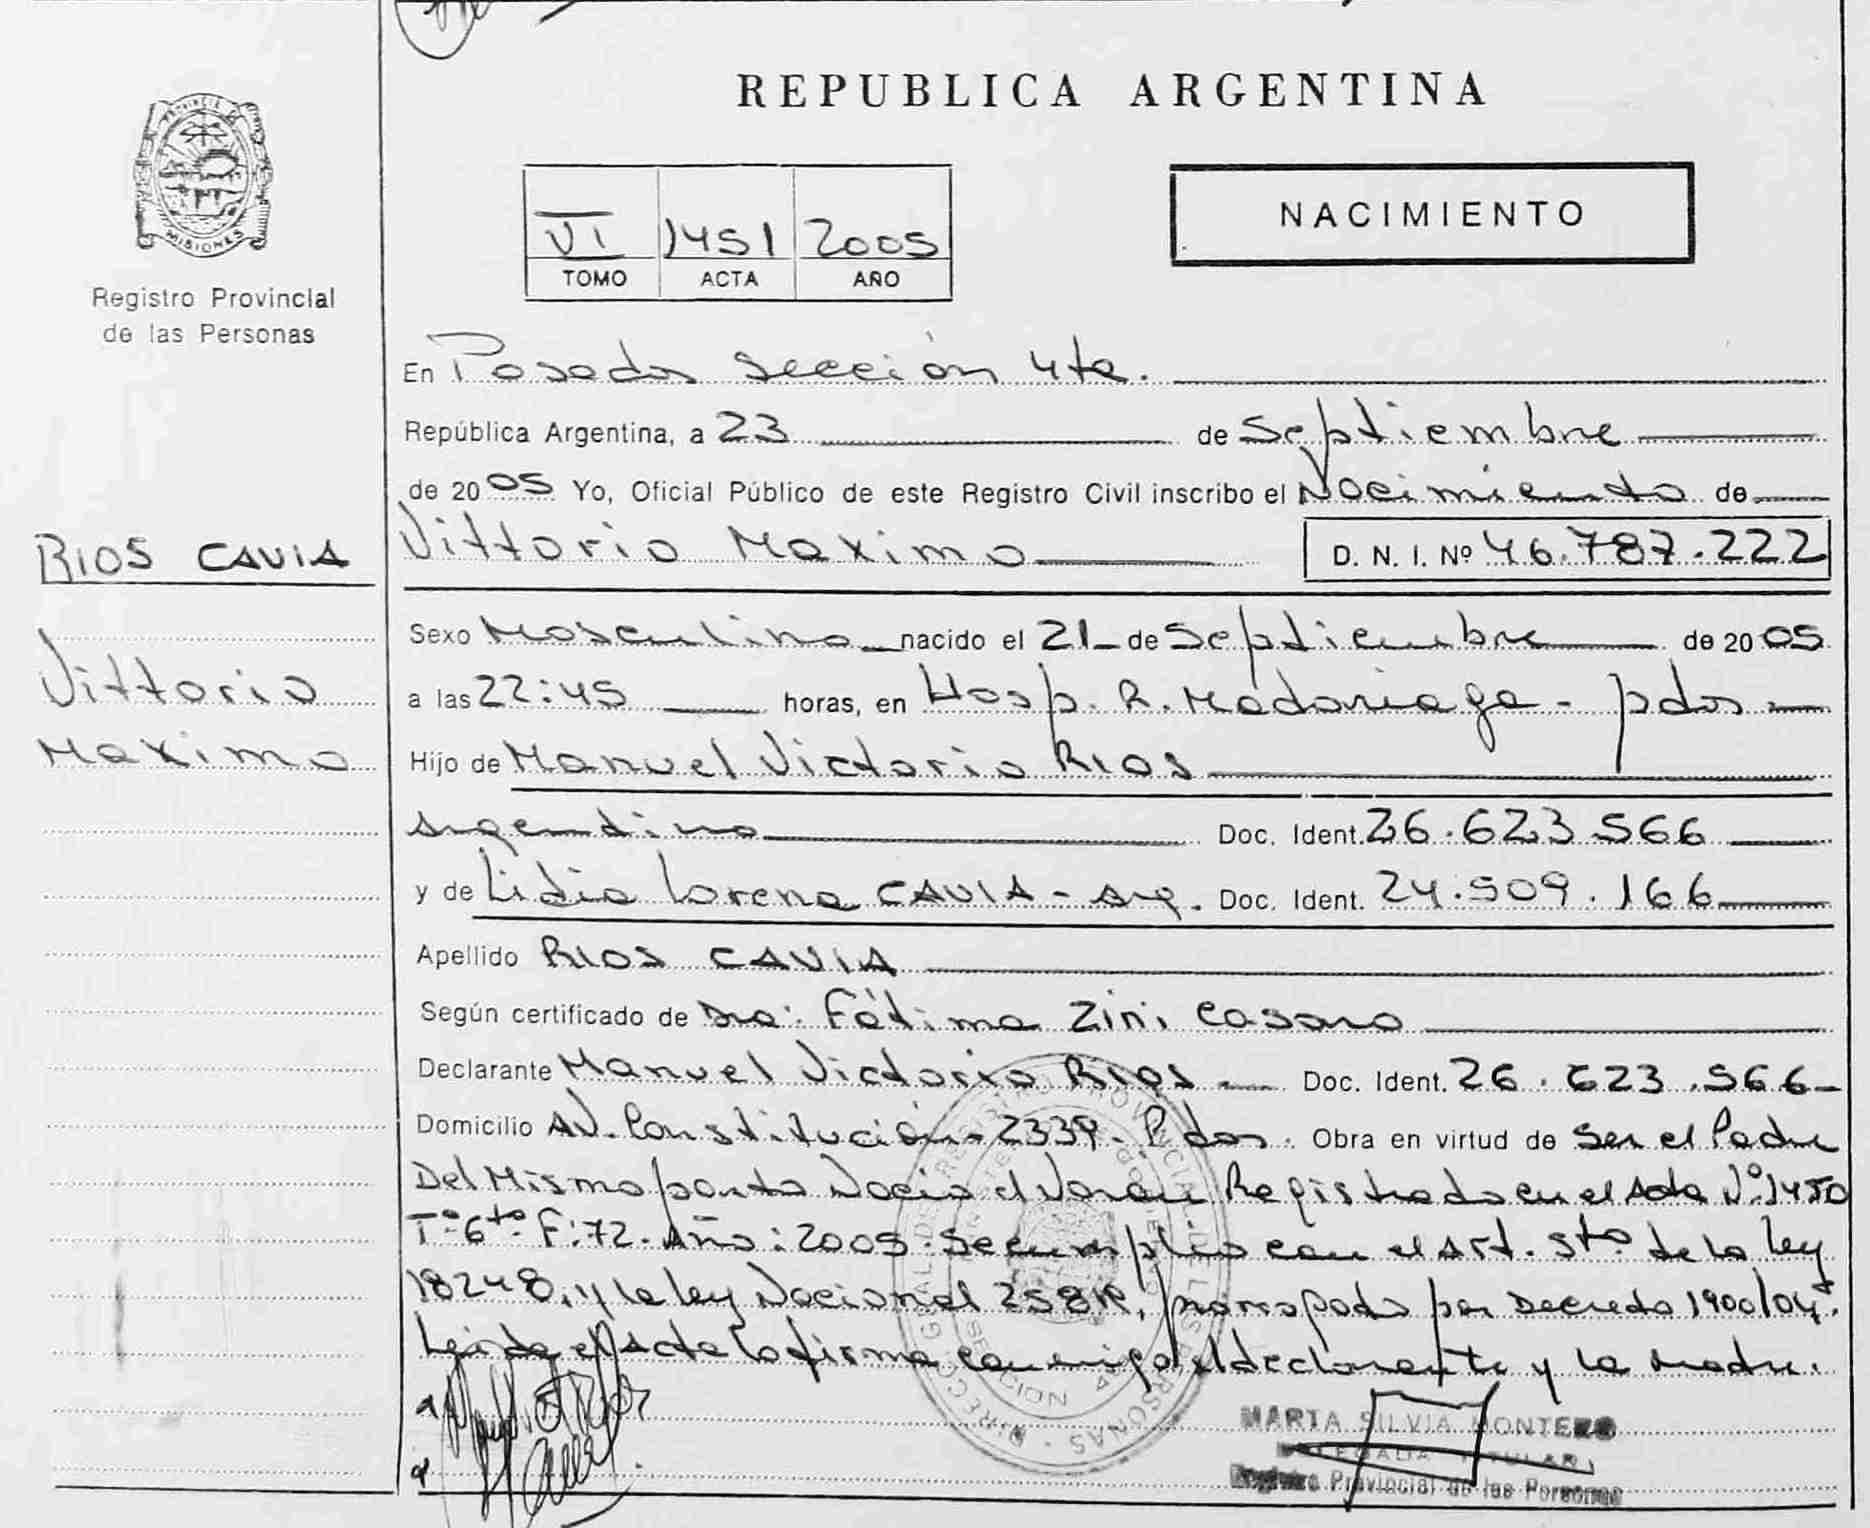 REPUBLICA ARGENTINA
PROVINCIA DE
MISIONES
Registro Provincial
de las Personas
NACIMIENTO
VI 1451 2005
TOMO ACTA AÑO
En Posadas Sección 4ta.
República Argentina, a 23 de Septiembre
de 2005 Yo, Oficial Público de este Registro Civil inscribo el Nacimiento de
Vittorio Maximo D. N. I. Nº 46.787.222
RIOS CAVIA
Vittorio
Maximo
Sexo Masculino nacido el 21 de Septiembre de 2005
a las 22:45 horas, en Hosp. R. Madariaga - pdas
Hijo de Manuel Victorio Rios
argentino Doc. Ident. 26.623.566
y de Lidia Lorena CAVIA - arg. Doc. Ident. 24.509.166
Apellido RIOS CAVIA
Según certificado de Dra: Fátima Zini Casaro
Declarante Manuel Victorio Rios Doc. Ident. 26.623.566
Domicilio AV. Constitución 2339. Pdas. Obra en virtud de Ser el Padre
Del Mismo parto Nacio el Varón Registrado en el Acta Nº 1450
Tº 6to F: 72. Año: 2005. Se cumplio con el Art. 5to de la ley
18248, y la ley Nacional 25819, prorrogado por Decreto 1900/04.
Leida el Acta la firma conmigo el declarante y la madre.
MARTA SILVIA MONTERO
DELEGADA TITULAR
Registro Provincial de las Personas